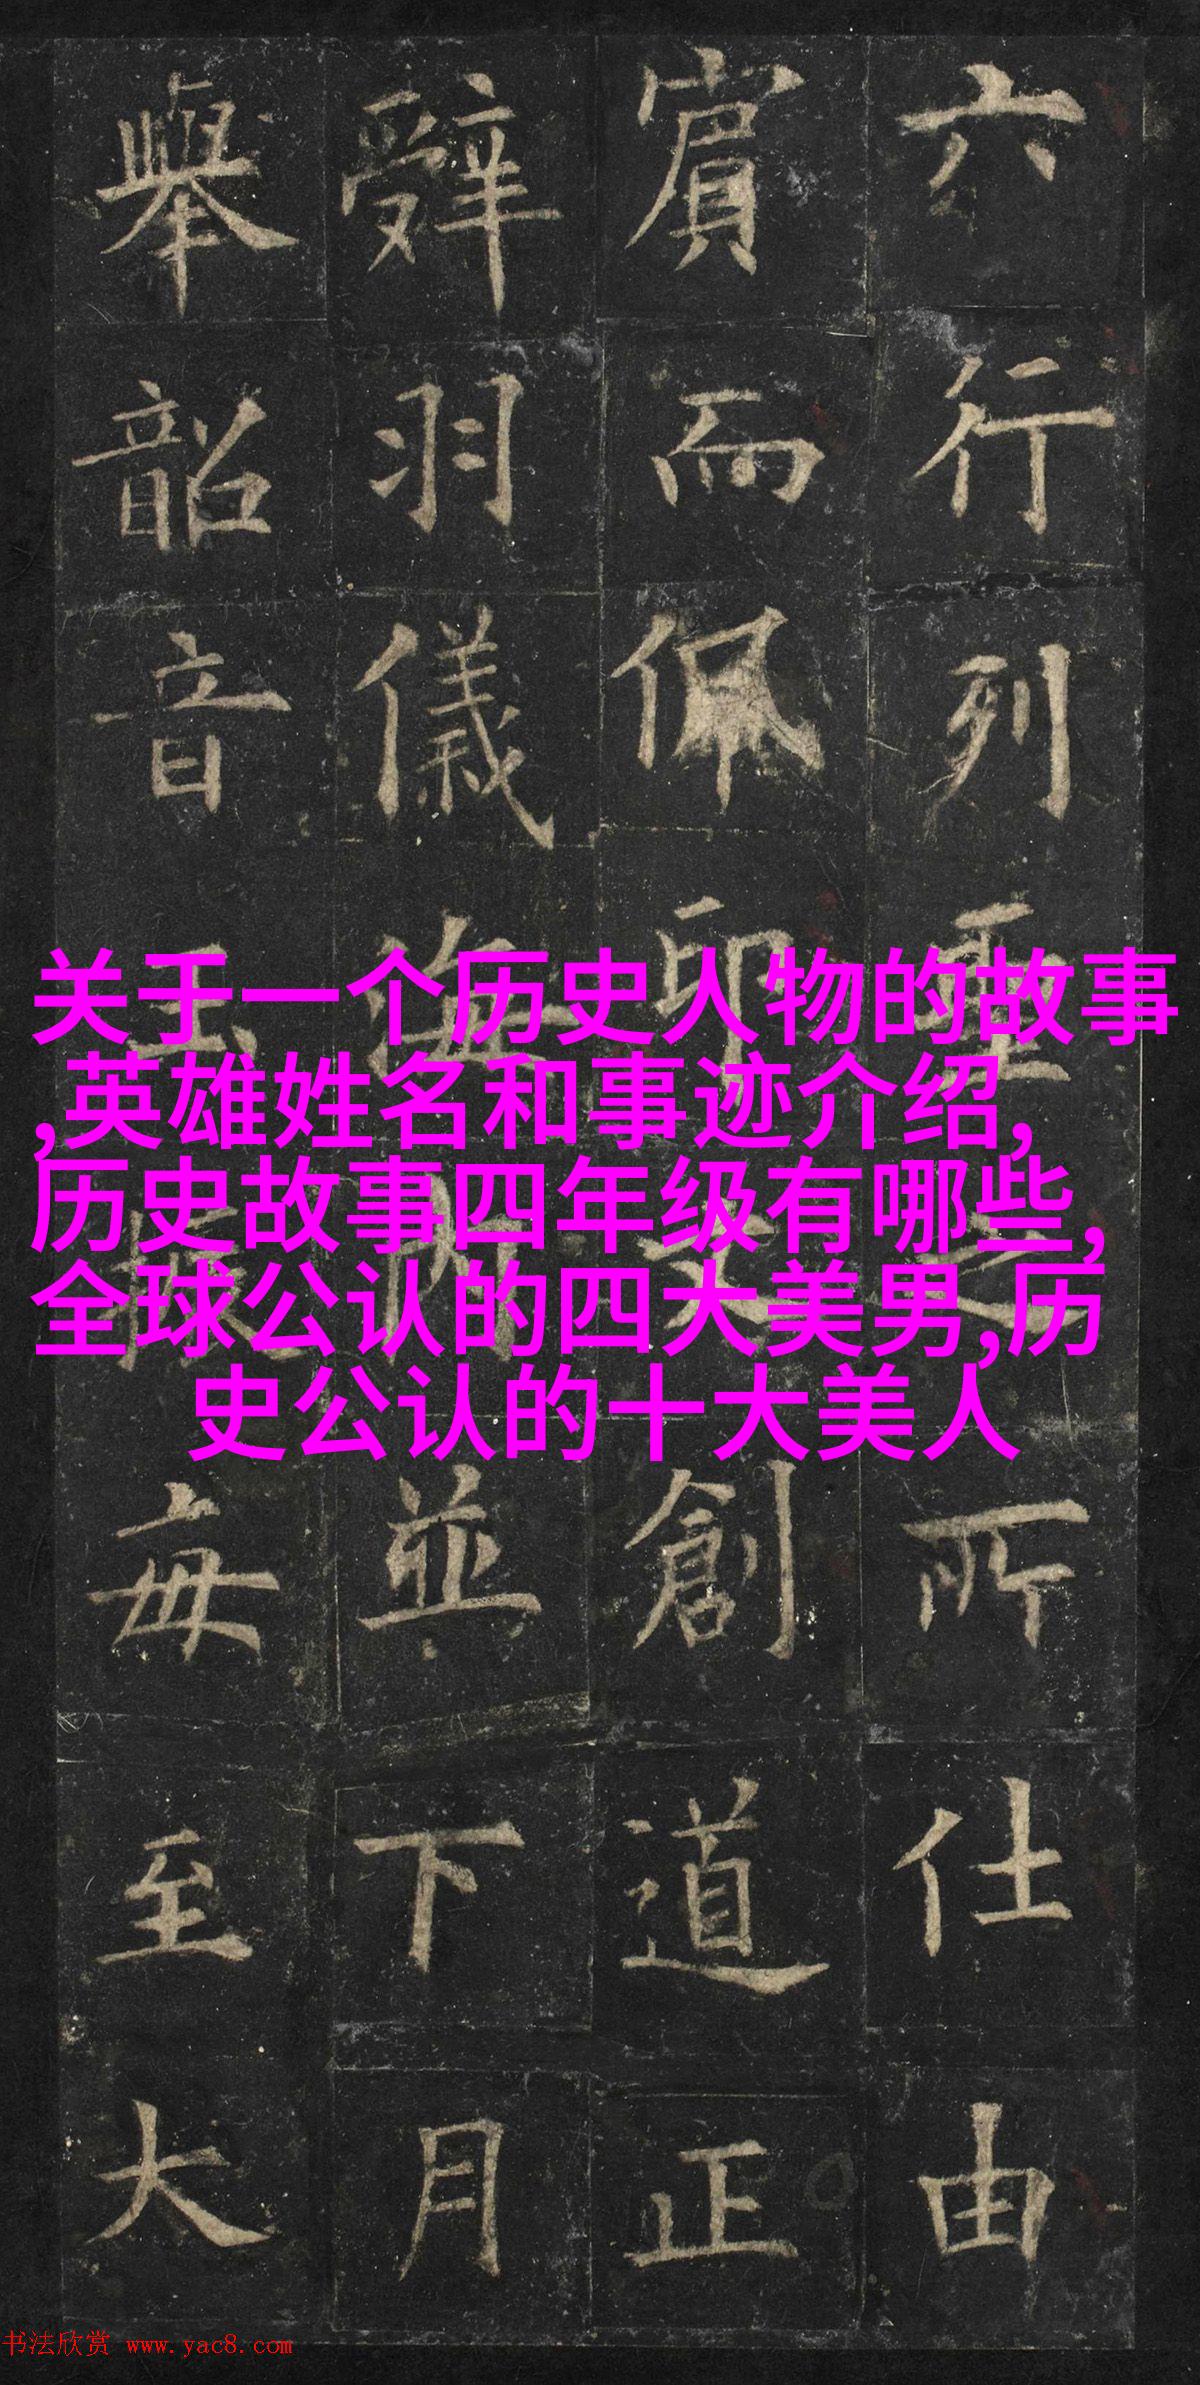 六行列重所仕由
賔而佩印創道正
辤羽儀海内並下月
舉韶音玉振毎至大
关于一个历史人物的故事
,英雄姓名和事迹介绍,
历史故事四年级有哪些,
全球公认的四大美男,历
史公认的十大美人
书法欣赏 www.yac8.com